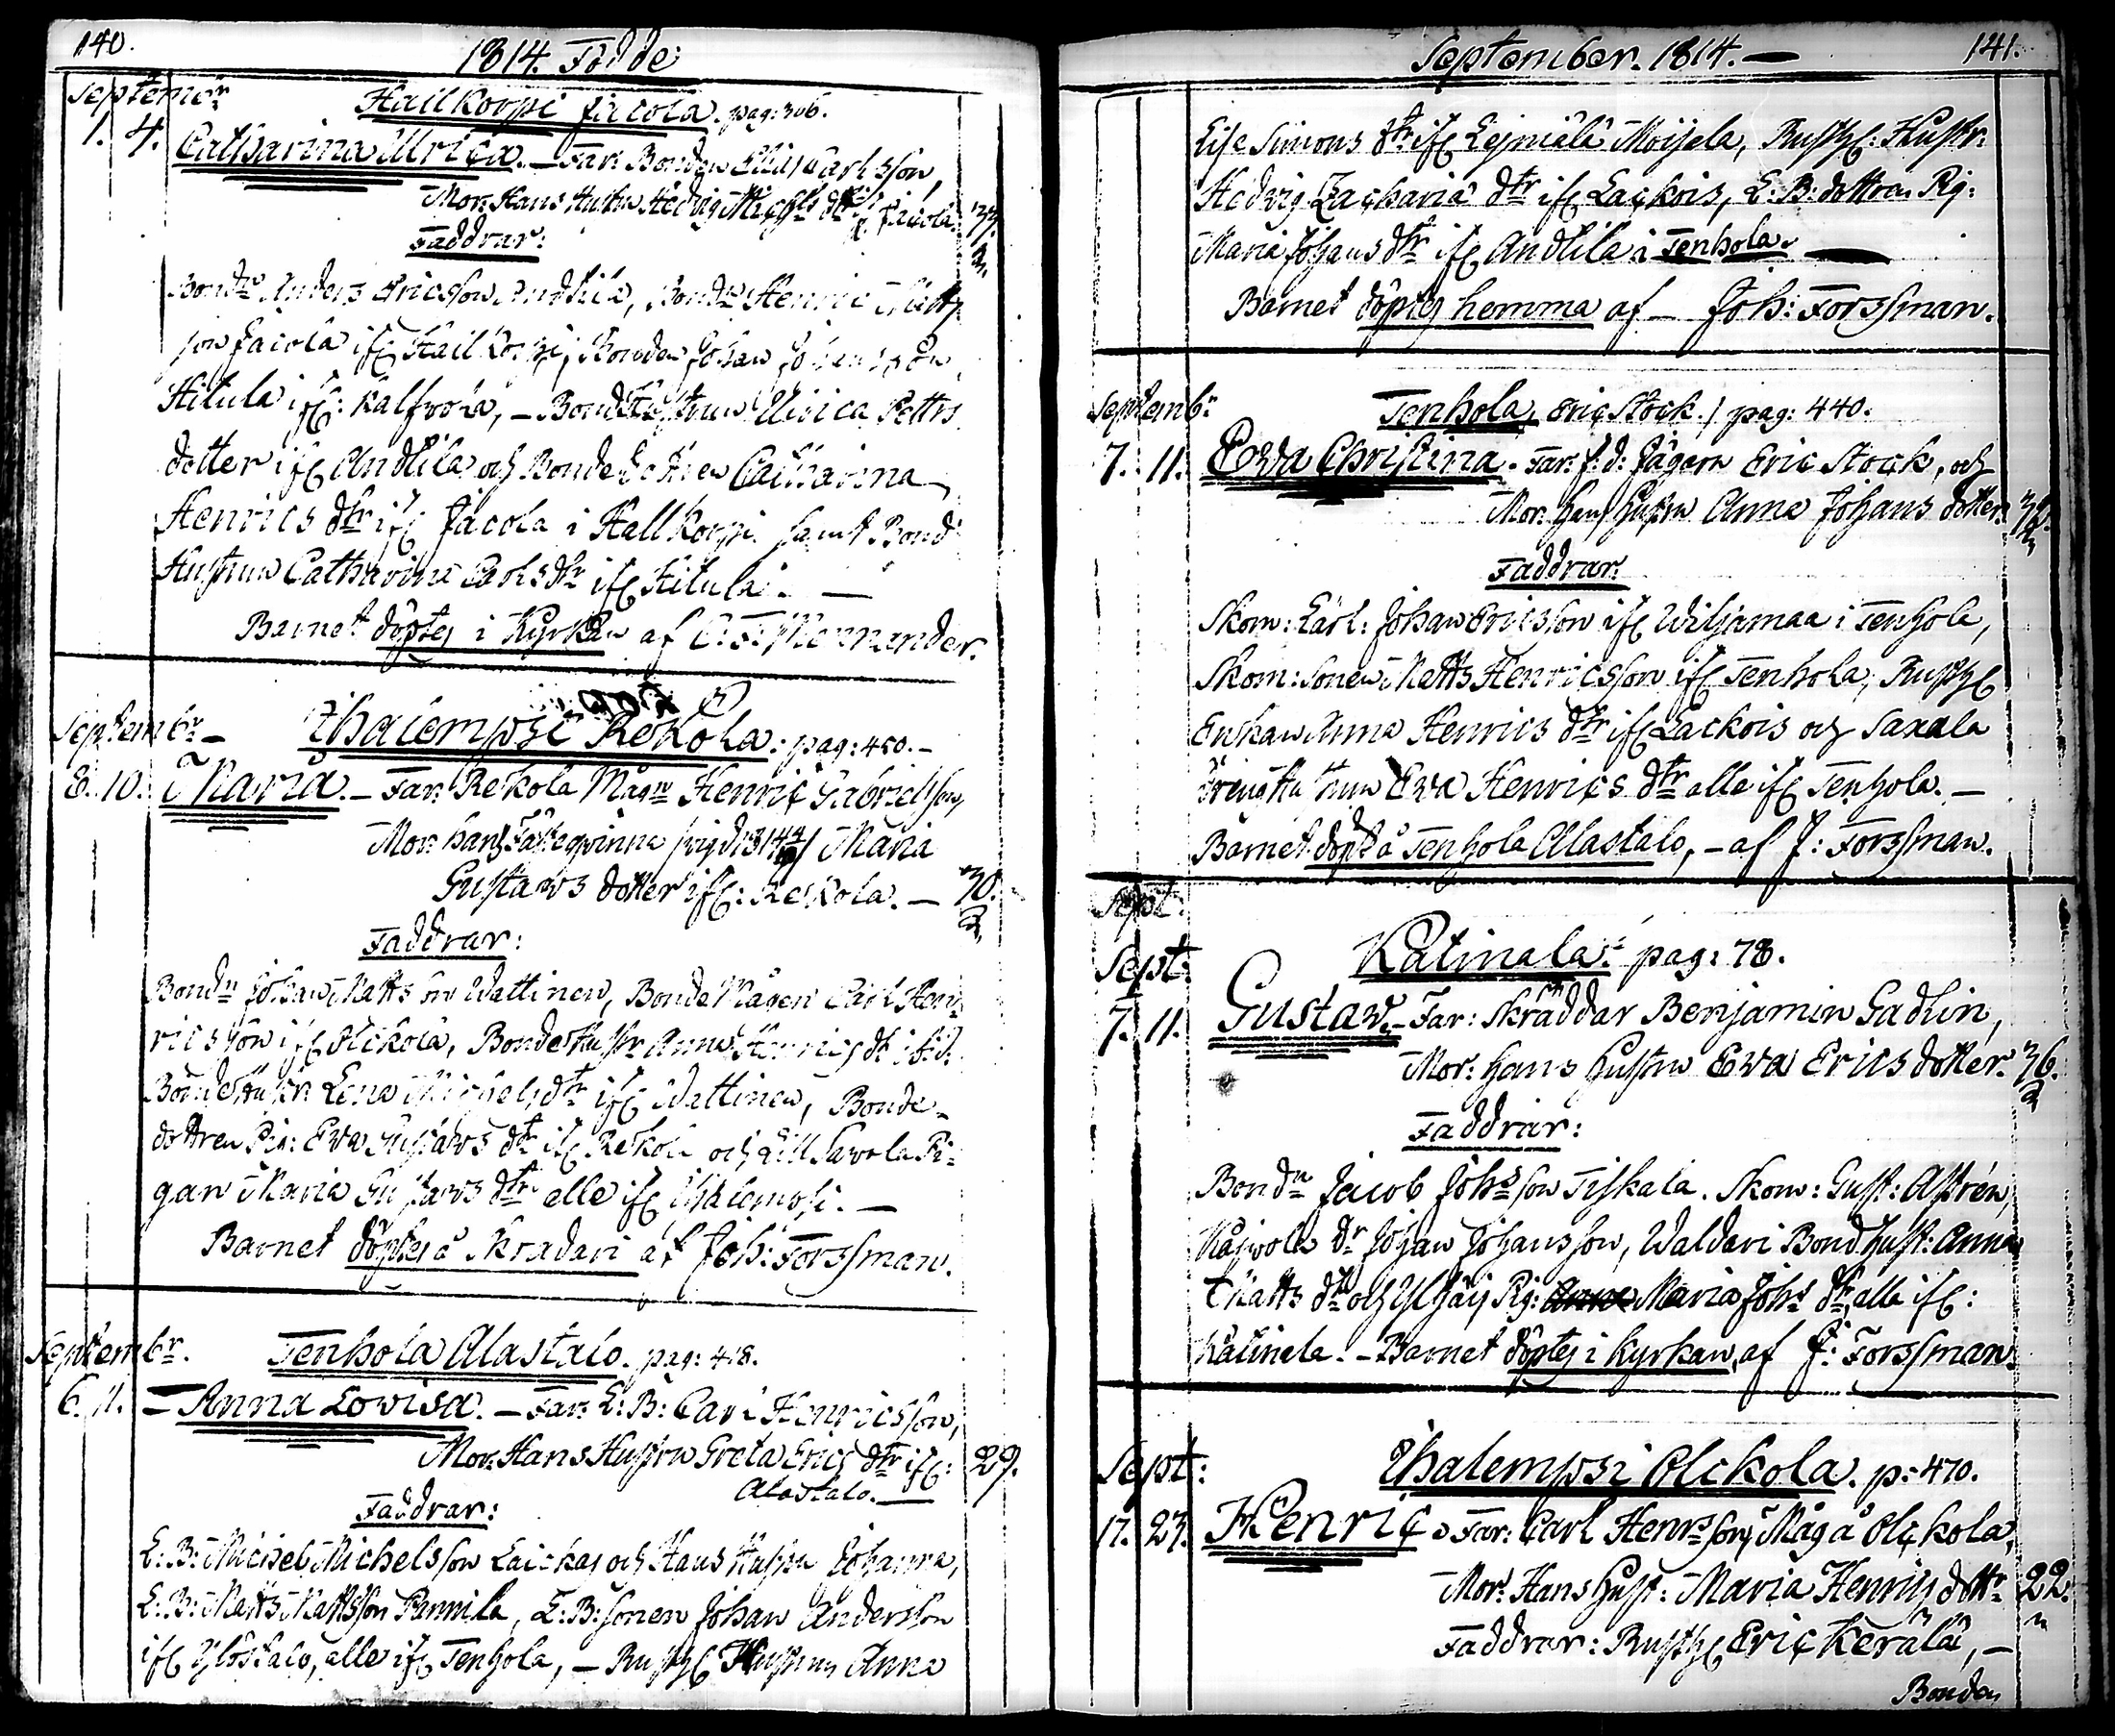 140.
1814. Födde:
September
Hailkorpi Jacola. pag: 306.
1. 4. Catharina Ulrica. — Far: Bonden Carlsson,
Mor: Hans Hustru Hedvig Michels dtr Jacola. 37.
Faddrar:
Bondn Anders Ericsson Andkila, Bondn Henric Matts
son Jacola if: Hailkorpi, Bonden Johan Johansson
Hitula if: Kalfvola, — Bond Hustrun Ulrica Petters
dotter if Andkila och Bonde dottren Catharina
Henrics dtr if Jacola i Hallkorpi samt Bond
Hustrun Catharina Carlsdtr if Hitula. —
Barnet döptes i Kyrkan af
Septembr —
Uhalempsi Rekola: pag: 450. —
8. 10. Maria. — Far: Rekola Mågn Henric Gabrielsson,
Mor: hans Fästeqvinna Maria
Gustavs dotter if: Rekola. — 30.
Faddrar:
Bondn Johan Mattsson Wattinen, Bonde Mågen Carl Hen-
ricsson if Olckola, Bonde Hustr Anna Henrics dtr ibid.
Bonde Hustr: Lena Michels dtr if Wattinen, Bonde-
dottren Pig: Ewa Gustavs dtr if Rekola och Lill Savola Pi-
gan Maria Gustavs dtr alle if Uhalempsi. —
Barnet döptes å Skradari af Joh: Forssman.
Septembr.
Tenhola Alastalo. pag: 418.
6. 11. — Anna Lovisa. — Far: L: B: Carl Henricsson,
Mor: Hans Hustru Greta Erics dtr if: 29.
Alastalo. —
Faddrar:
L: B: Michel Michelsson Laickas och Hans Hustru Johanna,
L: B: Matts Mattsson Pannila, L: B: sonen Johan Andersson
if Ylöstalo, alle if Tenhola, — Rusth Hustrun Anna
September. 1814. —
141.
Lisa Simons dtr if Lejniälä Moijsla, Rusth: Hustr:
Hedvig Zacharia dtr if Lackois, L: B: dottren Pig:
Maria Johans dtr if Andlila i Tenhola. —
Barnet döptes hemma af — Joh: Forssman.
Septembr
Tenhola, Eric Stock. / pag: 440.
7. 11. Ewa Christina. Far: f. d: Jägarn Eric Stock, och
Mor: hans hustru Anna Johans dotter.
Faddrar:
Skom: Lärl: Johan Ericsson if Wiljamaa i Tenhola,
Skom: Sonen Matts Henricsson if Tenhola, Rusth
Enkan Anna Henrics dtr if Lackois och Saxala
dräng Hustrun Ewa Henrics dtr alle if Tenhola. —
Barnet döpt å Tenhola Alastalo, — af J: Forssman.
Sept:
Sept:
Katinala: pag: 78.
7. 11. Gustav. — Far: Skräddar Benjamin Gadlin,
Mor: hans hustru Ewa Erics dotter. 36.
Faddrar:
Bondn Jacob Johsson Tiskala. Skom: Gust: Astrén,
Kaswola Dr Johan Johansson, Waldari Bond Hust: Anna
Matts dtr och Ylhäis Pig: Maria Johs dtr, alla if:
Katinala. — Barnet döptes i Kyrkan, af J: Forssman.
Sept:
Uhalempsi Olckola. p: 470.
17. 23. Henric. Far: Carl Henrsson, Måg å Olckola,
Mor: Hans hust: Maria Henrics dottr 22.
Faddrar: Rusth Eric Kerälä, —
Bonden